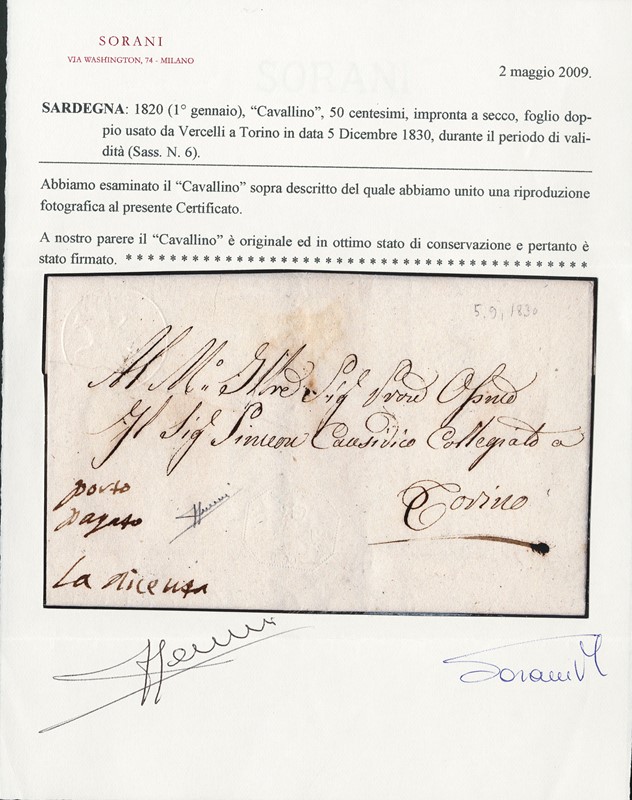 SORANI
VIA WASHINGTON, 74 - MILANO
SORANI
2 maggio 2009.
SARDEGNA: 1820 (1° gennaio), “Cavallino”, 50 centesimi, impronta a secco, foglio dop-
pio usato da Vercelli a Torino in data 5 Dicembre 1830, durante il periodo di vali-
dità (Sass. N. 6).
Abbiamo esaminato il “Cavallino” sopra descritto del quale abbiamo unito una riproduzione
fotografica al presente Certificato.
A nostro parere il “Cavallino” è originale ed in ottimo stato di conservazione e pertanto è
stato firmato. * * * * * * * * * * * * * * * * * * * * * * * * * * * * * * * * * * * * * * *
5.9, 1830
Al M.º Sig.
Il Sig. Causidico Collegiato a
Torino
porto
pagato
La dicenta
Sorani